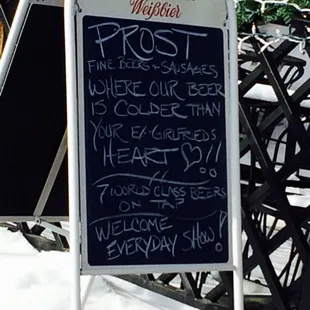 Weißbier
PROST
FINE BEERS & SAUSAGES
WHERE OUR BEER
IS COLDER THAN
YOUR EX-GIRLFRIEDS
HEART ♡!!
7 WORLD CLASS BEERS
ON TAP
WELCOME
EVERYDAY SHOW!